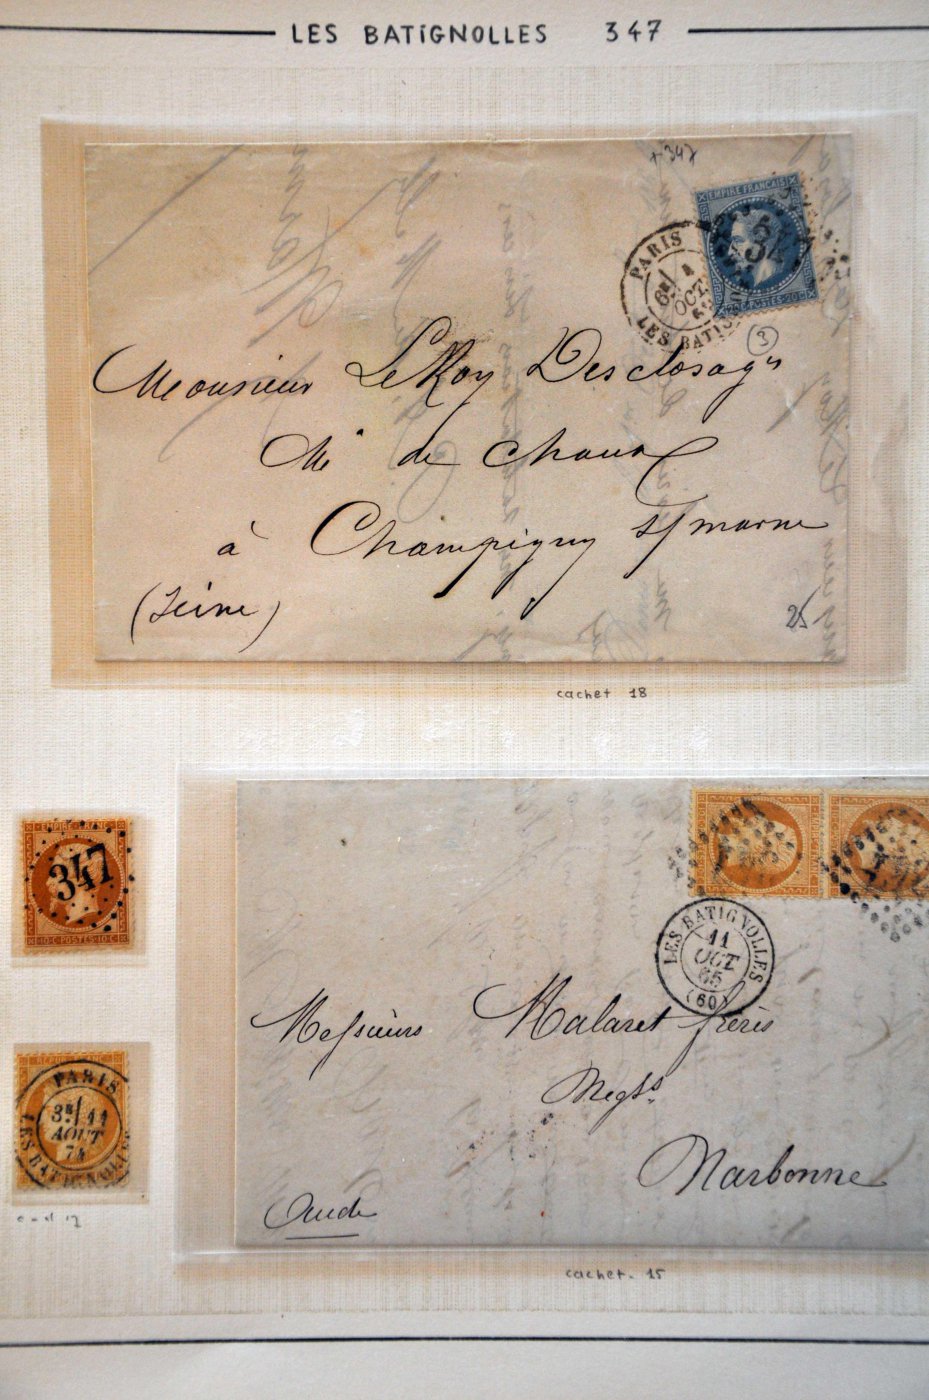 LES BATIGNOLLES 347
+347
EMPIRE FRANÇAIS
34
POSTES 20 C
PARIS
6E/ 4
OCT
LES BATIG
3
Monsieur LeRoy Desclosages
Md de Chaux
à Champigny s/ marne
(Seine)
25
cachet 18
EMPIRE FRANC
347
10 C POSTES 10 C
LES BATIGNOLLES
11
OCT
65
(60)
Messieurs Malaret frères
Negts
Narbonne
Aude
PARIS
3E/ 11
AOUT
74
LES BATIGNOLLES
cachet. 15